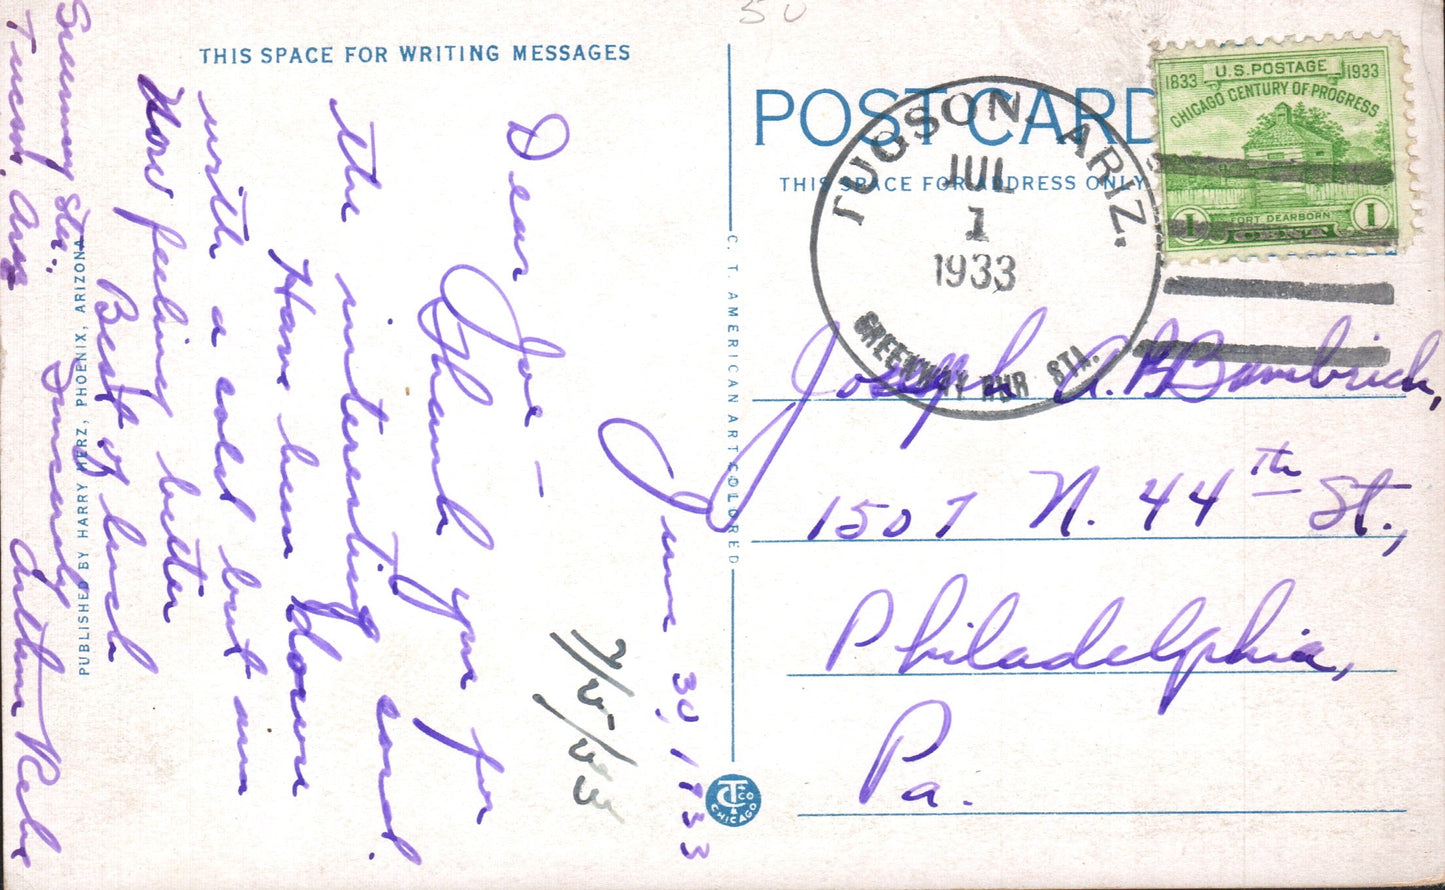 50
THIS SPACE FOR WRITING MESSAGES
June 30, 1933
7/5/33
Dear Joe —
Thank you for
the interesting card.
Have been down
with a cold but am
now feeling better
Best of luck
Sincerely
Arthur
Greenway Sta.,
Tucson, Ariz
PUBLISHED BY HARRY HERZ, PHOENIX, ARIZONA
C. T. AMERICAN ART COLORED
C T & CO
CHICAGO
POST CARD
THIS SPACE FOR ADDRESS ONLY
TUCSON, ARIZ.
JUL
1
1933
GREENWAY RUR STA.
1833 U.S. POSTAGE 1933
CHICAGO CENTURY OF PROGRESS
FORT DEARBORN
1 CENT 1
Joseph A. Bambrick,
1507 N. 44th St.,
Philadelphia,
Pa.